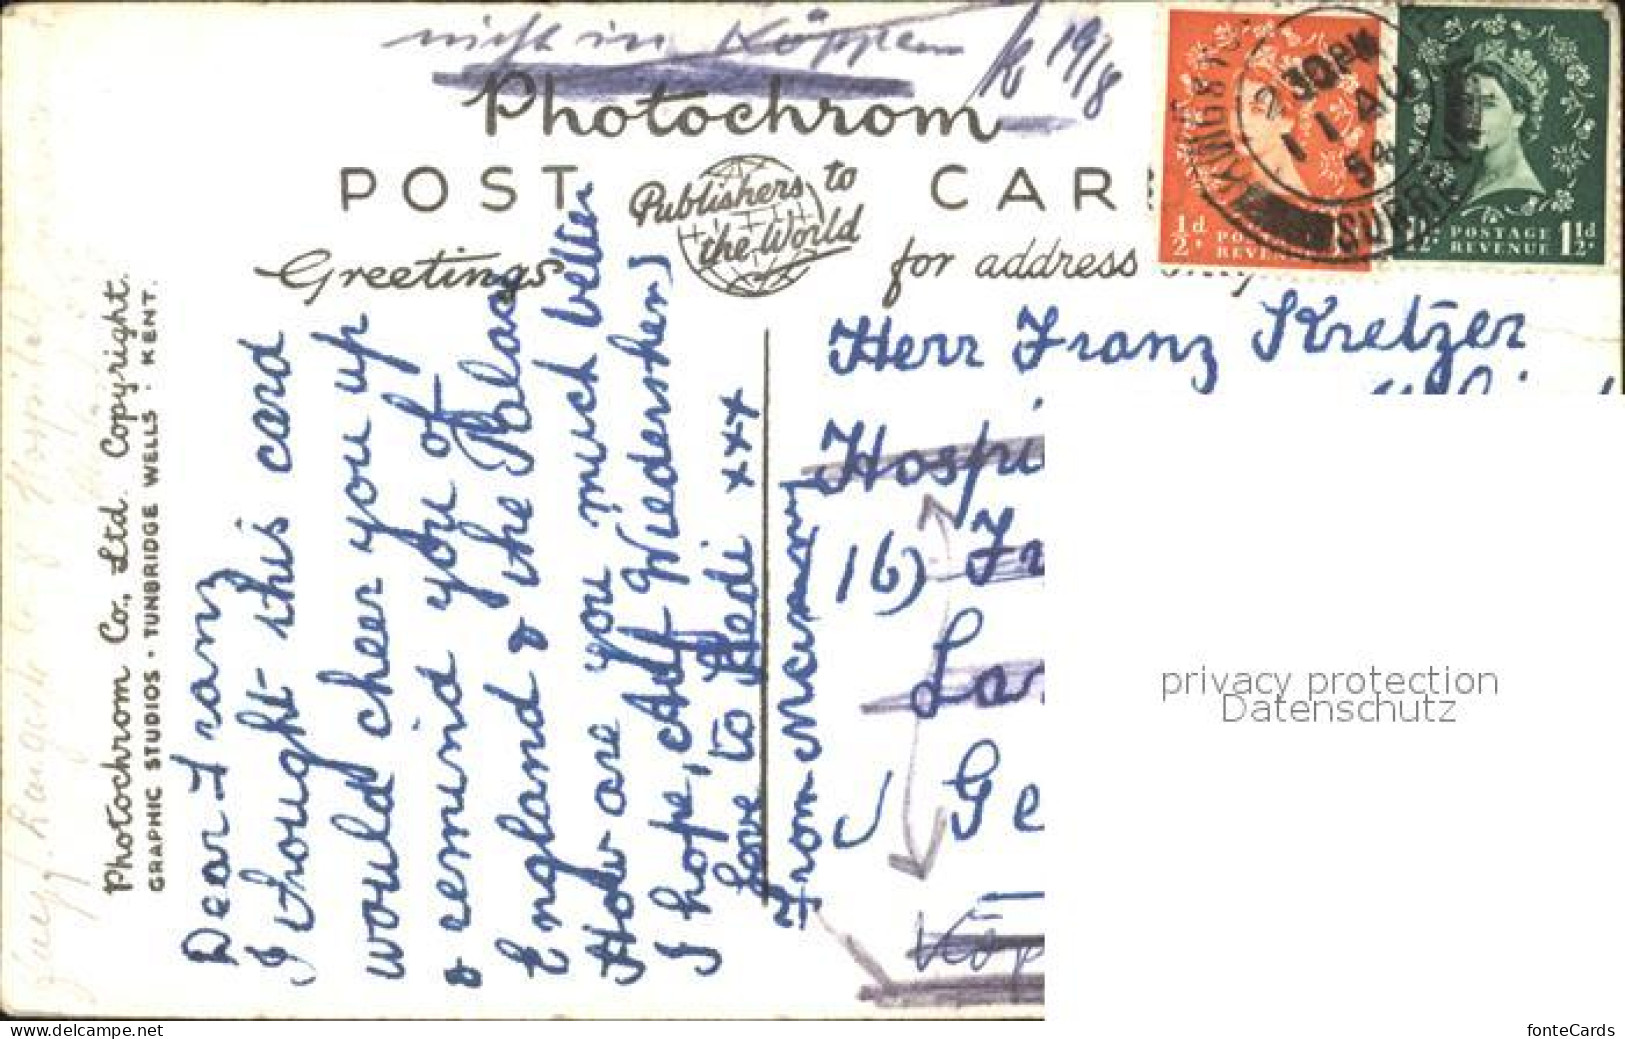 nicht in Köppern
k 19/8
Photochrom
POST CAR
Publishers to
the World
Greetings
for address
2 30 PM
11 AU
54
SURREY
½d POSTAGE REVENUE
1½d POSTAGE REVENUE 1½d
Photochrom Co., Ltd. Copyright.
GRAPHIC STUDIOS · TUNBRIDGE WELLS · KENT.
Dear Franz
I thought this card
would cheer you up
& remind you of
England & the Palace
How are you much better
I hope, Auf Wiedersehen
love to Hedi xxx
From Maureen
Herr Franz Kretzer
Hospi
16) Fr
La
Ge
Köp
privacy protection
Datenschutz
https://www.delcampe.net
fonteCards